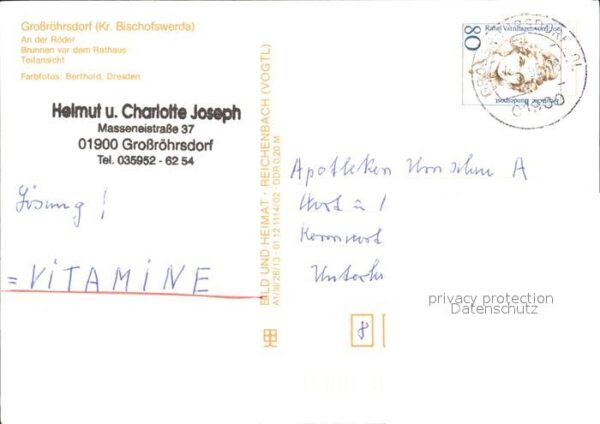 Großröhrsdorf (Kr. Bischofswerda)
An der Röder
Brunnen vor dem Rathaus
Teilansicht
Farbfotos: Berthold, Dresden
Helmut u. Charlotte Joseph
Masseneistraße 37
01900 Großröhrsdorf
Tel. 035952 - 62 54
Lösung!
= VITAMINE
BILD UND HEIMAT · REICHENBACH (VOGTL)
A1/III/26/13 · 01 12 1114/02 · DDR 0,20 M
80
Rahel Varnhagen von Ense
Deutsche Bundespost
01900
Apotheken A
8
privacy protection
Datenschutz